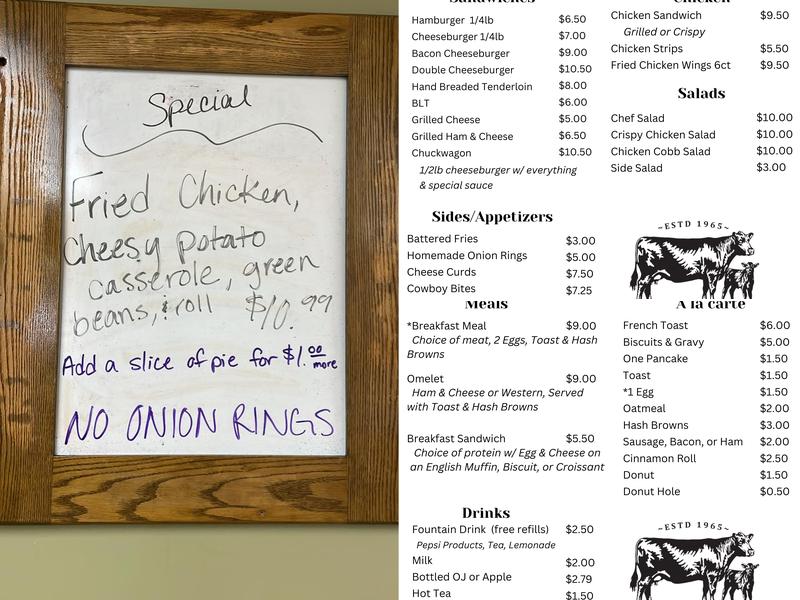 Special
Fried Chicken,
Cheesy potato
casserole, green
beans, & roll $10.99
Add a slice of pie for $1.00 more
NO ONION RINGS
Sandwiches
Hamburger 1/4lb $6.50
Cheeseburger 1/4lb $7.00
Bacon Cheeseburger $9.00
Double Cheeseburger $10.50
Hand Breaded Tenderloin $8.00
BLT $6.00
Grilled Cheese $5.00
Grilled Ham & Cheese $6.50
Chuckwagon $10.50
1/2lb cheeseburger w/ everything
& special sauce
Sides/Appetizers
Battered Fries $3.00
Homemade Onion Rings $5.00
Cheese Curds $7.50
Cowboy Bites $7.25
Chicken
Chicken Sandwich $9.50
Grilled or Crispy
Chicken Strips $5.50
Fried Chicken Wings 6ct $9.50
Salads
Chef Salad $10.00
Crispy Chicken Salad $10.00
Chicken Cobb Salad $10.00
Side Salad $3.00
~ESTD 1965~
Meals
*Breakfast Meal $9.00
Choice of meat, 2 Eggs, Toast & Hash
Browns
Omelet $9.00
Ham & Cheese or Western, Served
with Toast & Hash Browns
Breakfast Sandwich $5.50
Choice of protein w/ Egg & Cheese on
an English Muffin, Biscuit, or Croissant
Drinks
Fountain Drink (free refills) $2.50
Pepsi Products, Tea, Lemonade
Milk $2.00
Bottled OJ or Apple $2.79
Hot Tea $1.50
A la carte
French Toast $6.00
Biscuits & Gravy $5.00
One Pancake $1.50
Toast $1.50
*1 Egg $1.50
Oatmeal $2.00
Hash Browns $3.00
Sausage, Bacon, or Ham $2.00
Cinnamon Roll $2.50
Donut $1.50
Donut Hole $0.50
~ESTD 1965~